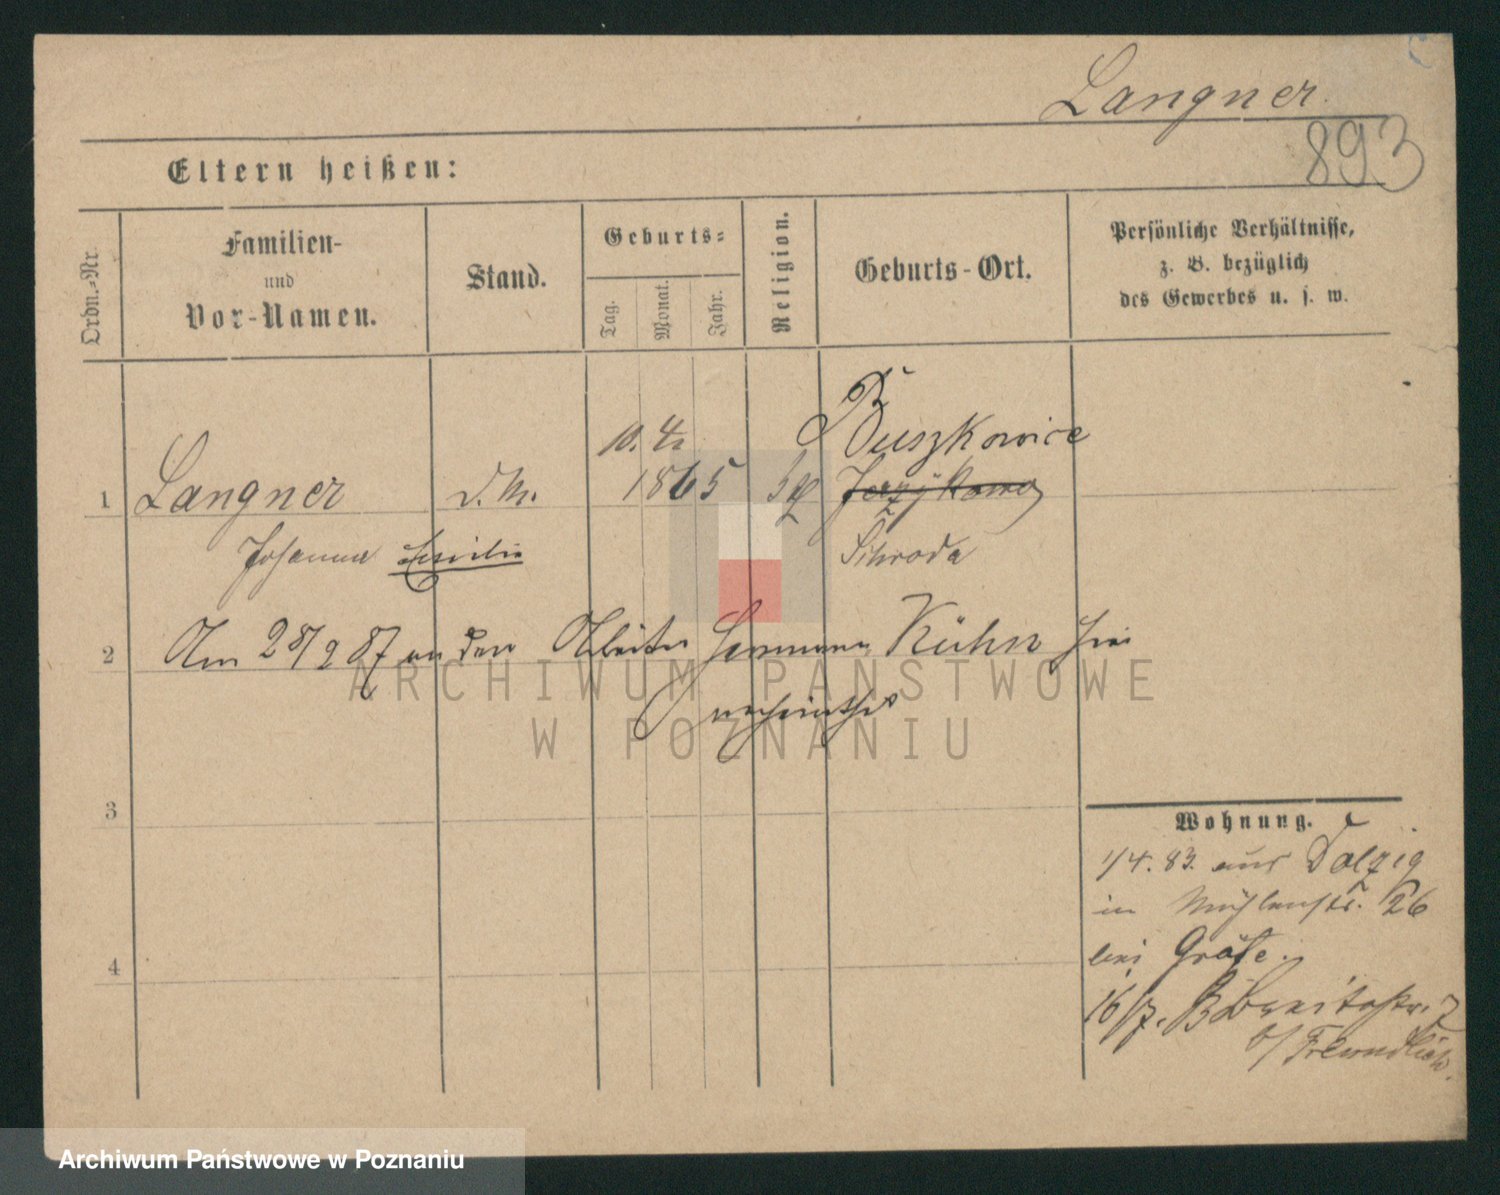 Langner.
893
Eltern heißen:
Ordn.-Nr.
Familien-
und
Vor-Namen.
Stand.
Geburts-
Tag.
Monat.
Jahr.
Religion.
Geburts-Ort.
Persönliche Verhältnisse,
z. B. bezüglich
des Gewerbes u. s. w.
10. 4.
Buszkowice
1
Langner
d. M.
1865
Jerzykowo
Johanna Emilie
Schroda
2
Am 28/9 87 an den Arbeiter Hermann Kühn hier
verheirathet
ARCHIWUM PAŃSTWOWE
W POZNANIU
3
Wohnung.
1/4. 83. aus Dolzig
in Mühlenstr. 26
bei Gräfe.
4
16/7.
b/ Freundlich.
Archiwum Państwowe w Poznaniu